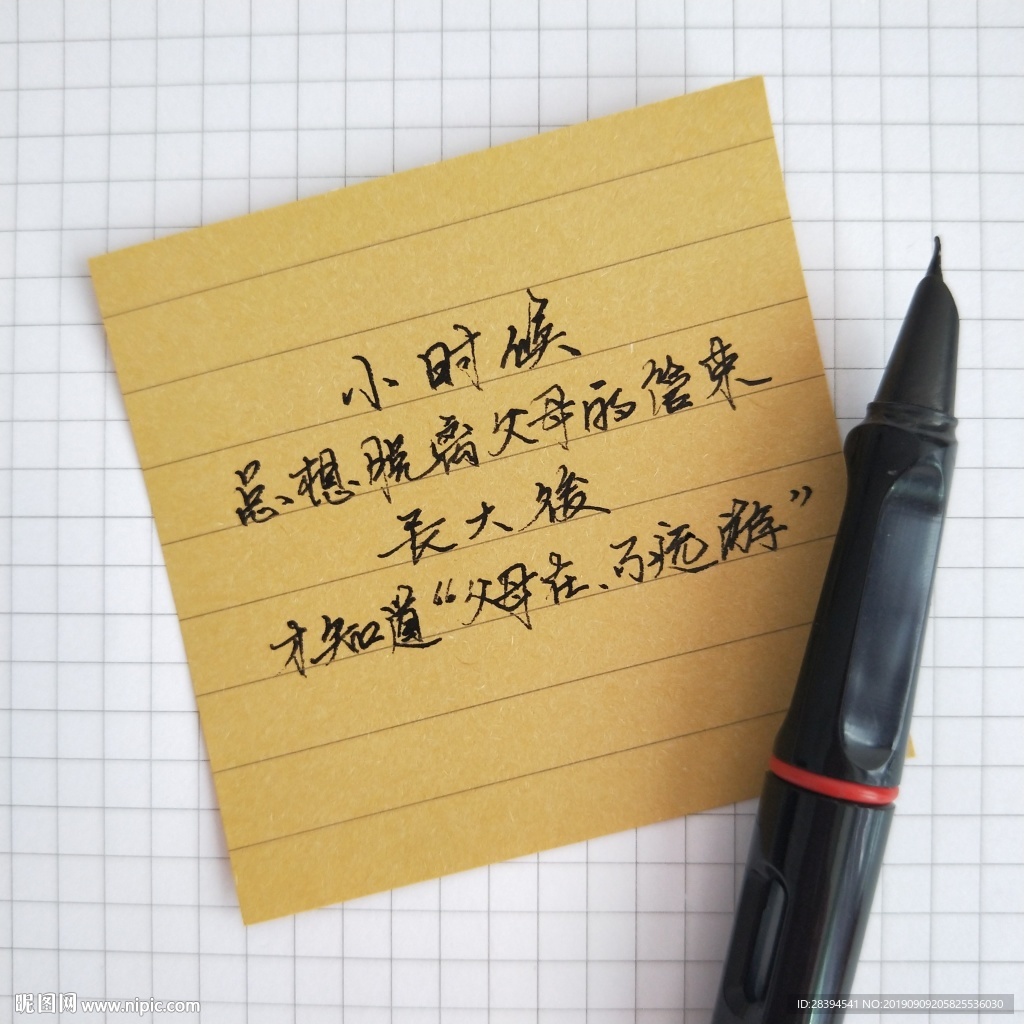 小时候
总想脱离父母的管束
長大後
才知道“父母在、不远游”
昵图网 www.nipic.com
ID:28394541 NO:20190909205825536030